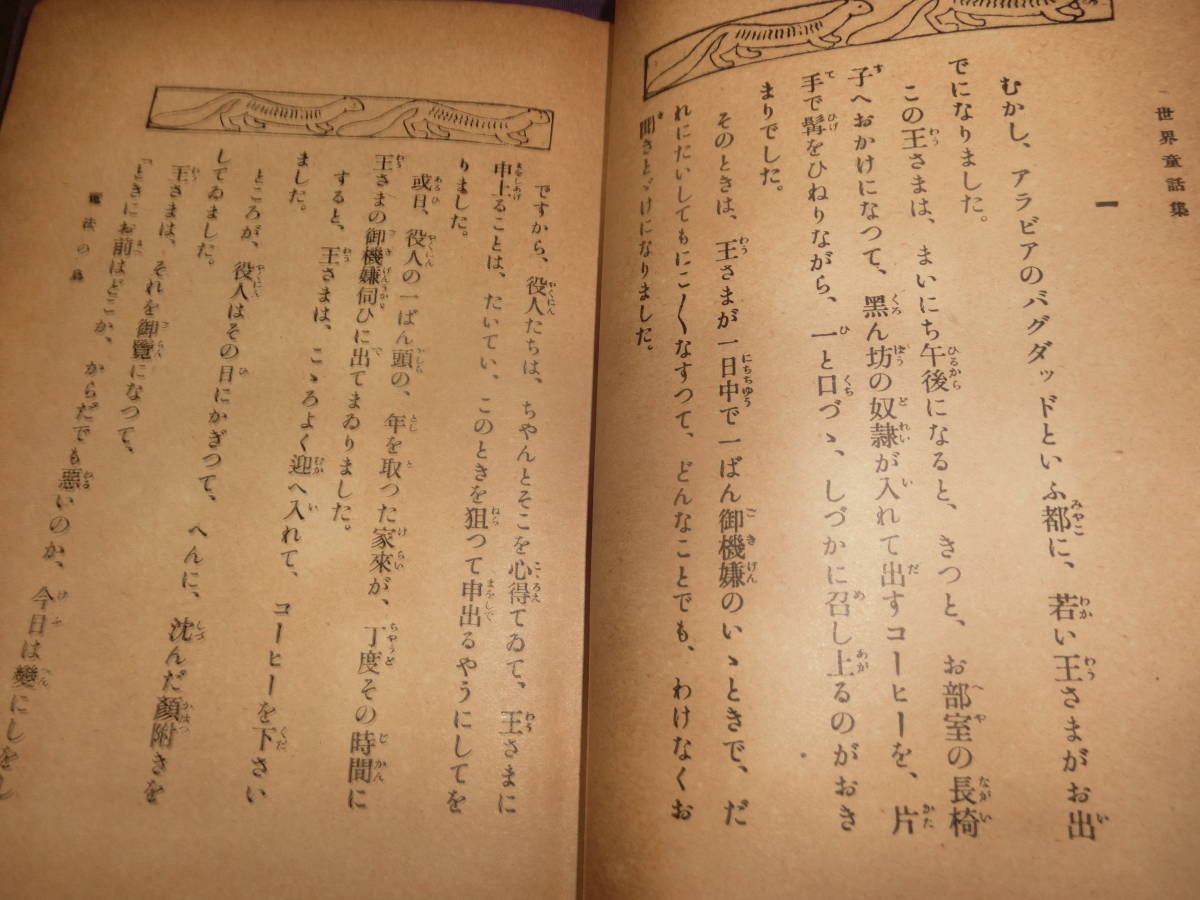 世界童話集
一
むかし、アラビアのバグダッドといふ都に、若い王さまがお出
でになりました。
この王さまは、まいにち午後になると、きつと、お部室の長椅
子へおかけになつて、黑ん坊の奴隷が入れて出すコーヒーを、片
手で髯をひねりながら、一と口づゝ、しづかに召し上るのがおき
まりでした。
そのときは、王さまが一日中で一ばん御機嫌のいゝときで、だ
れにたいしてもにこ〳〵なすつて、どんなことでも、わけなくお
聞きとゞけになりました。
ですから、役人たちは、ちやんとそこを心得てゐて、王さまに
申上ることは、たいてい、このときを狙つて申出るやうにしてを
りました。
或日、役人の一ばん頭の、年を取つた家來が、丁度その時間に
王さまの御機嫌伺ひに出てまゐりました。
すると、王さまは、こゝろよく迎へ入れて、コーヒーを下さい
ました。
ところが、役人はその日にかぎつて、へんに、沈んだ顏附きを
してゐました。
王さまは、それを御覽になつて、
「ときにお前はどこか、からだでも惡いのか、今日は變にしをし
魔法の鳥